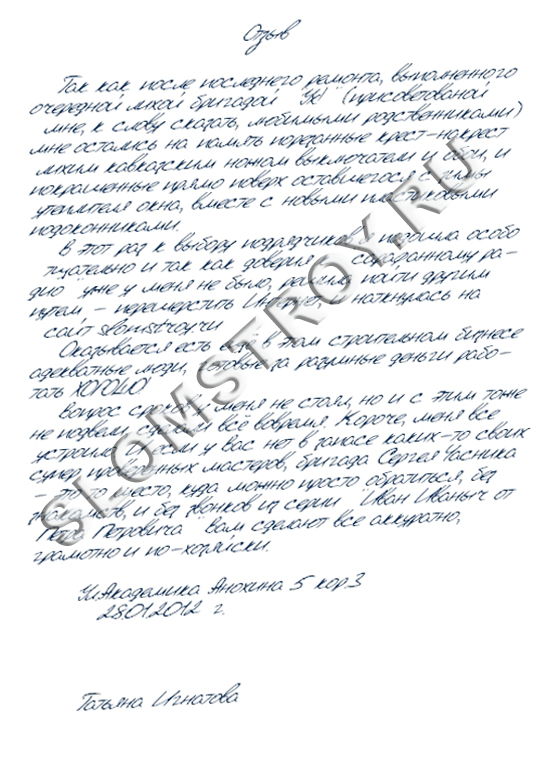 Отзыв
Так как после последнего ремонта, выполненного
очередной лихой бригадой "Ух" (присоветованой
мне, к слову сказать, любимыми родственниками)
мне остались на память порезанные крест-накрест
лихим кавказским ножом выключатели и обои, и
покрашенные прямо поверх оставшегося с зимы
утеплителя окна, вместе с новыми пластиковыми
подоконниками.
В этот раз к выбору подрядчиков я подошла особо
тщательно и так как доверия к сарафанному ра-
дио уже у меня не было, решила пойти другим
путем, - перешерстить Интернет, и наткнулась на
сайт slomstroy.ru
Оказывается есть ещё в этом строительном бизнесе
адекватные люди, готовые за разумные деньги рабо-
тать ХОРОШО!
Вопрос сроков у меня не стоял, но и с этим тоже
не подвели, сделали всё вовремя. Короче, меня все
устроило. И если у вас нет в запасе каких-то своих
супер проверенных мастеров, бригада Сергея Часника
- это то место, куда можно просто обратится, без
знакомств, и без звонков из серии "Иван Иваныч от
Петра Петровича" Вам сделают все аккуратно,
грамотно и по-хозяйски.
Ул.Академика Анохина 5 кор.3
28.01.2012 г.
Татьяна Игнатова
SLOMSTROY.RU